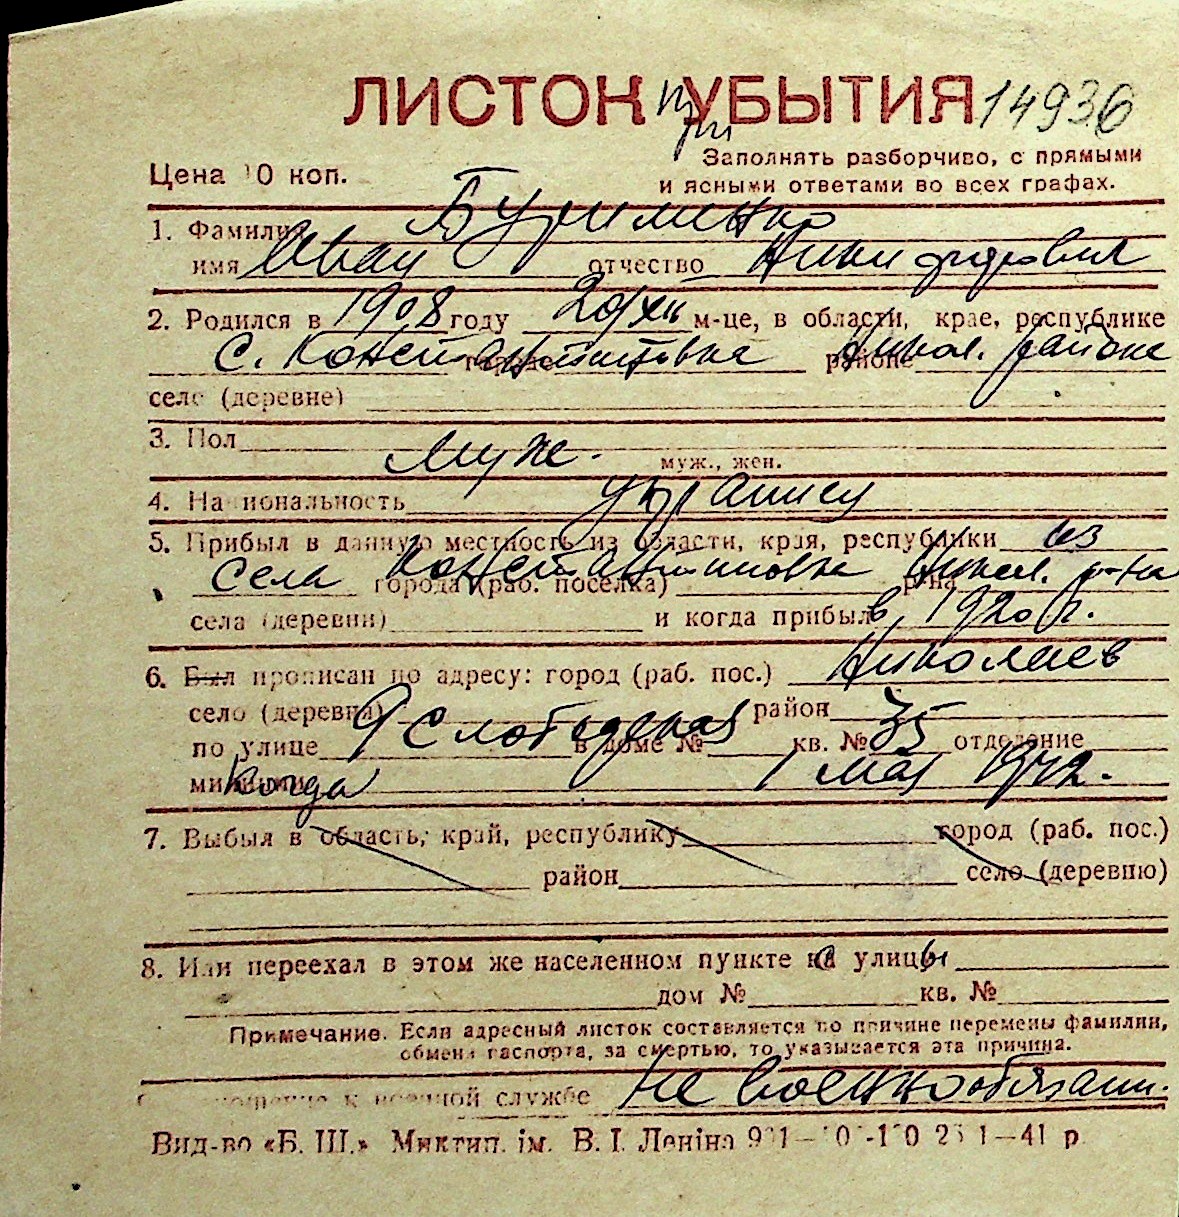 ЛИСТОК УБЫТИЯ 14936
Заполнять разборчиво, с прямыми
Цена 10 коп. и ясными ответами во всех графах.
1. Фамилия Бурименко
имя Иван отчество Никифорович
2. Родился в 1908 году 20/XII м-це, в области, крае, республике
с. Константиновка городе Никол. районе района
селе (деревне)
3. Пол Муж.
муж., жен.
4. Национальность украинец
5. Прибыл в данную местность из области, края, республики из
села Константиновка города (раб. поселка) Никол. р-на р-на
села (деревни) и когда прибыл в 1920 г.
6. Был прописан по адресу: город (раб. пос.) Николаев
село (деревня) район
по улице 9 Слободская в доме № кв. № 35 отделение
милиции когда 1 мая 1942.
7. Выбыл в область, край, республику город (раб. пос.)
район село (деревню)
8. Или переехал в этом же населенном пункте с улицы
дом № кв. №
Примечание. Если адресный листок составляется по причине перемены фамилии,
обмена паспорта, за смертью, то указывается эта причина.
к военной службе Не военнообязан.
Вид-во «Б. Ш.» Миктип. ім. В. І. Леніна